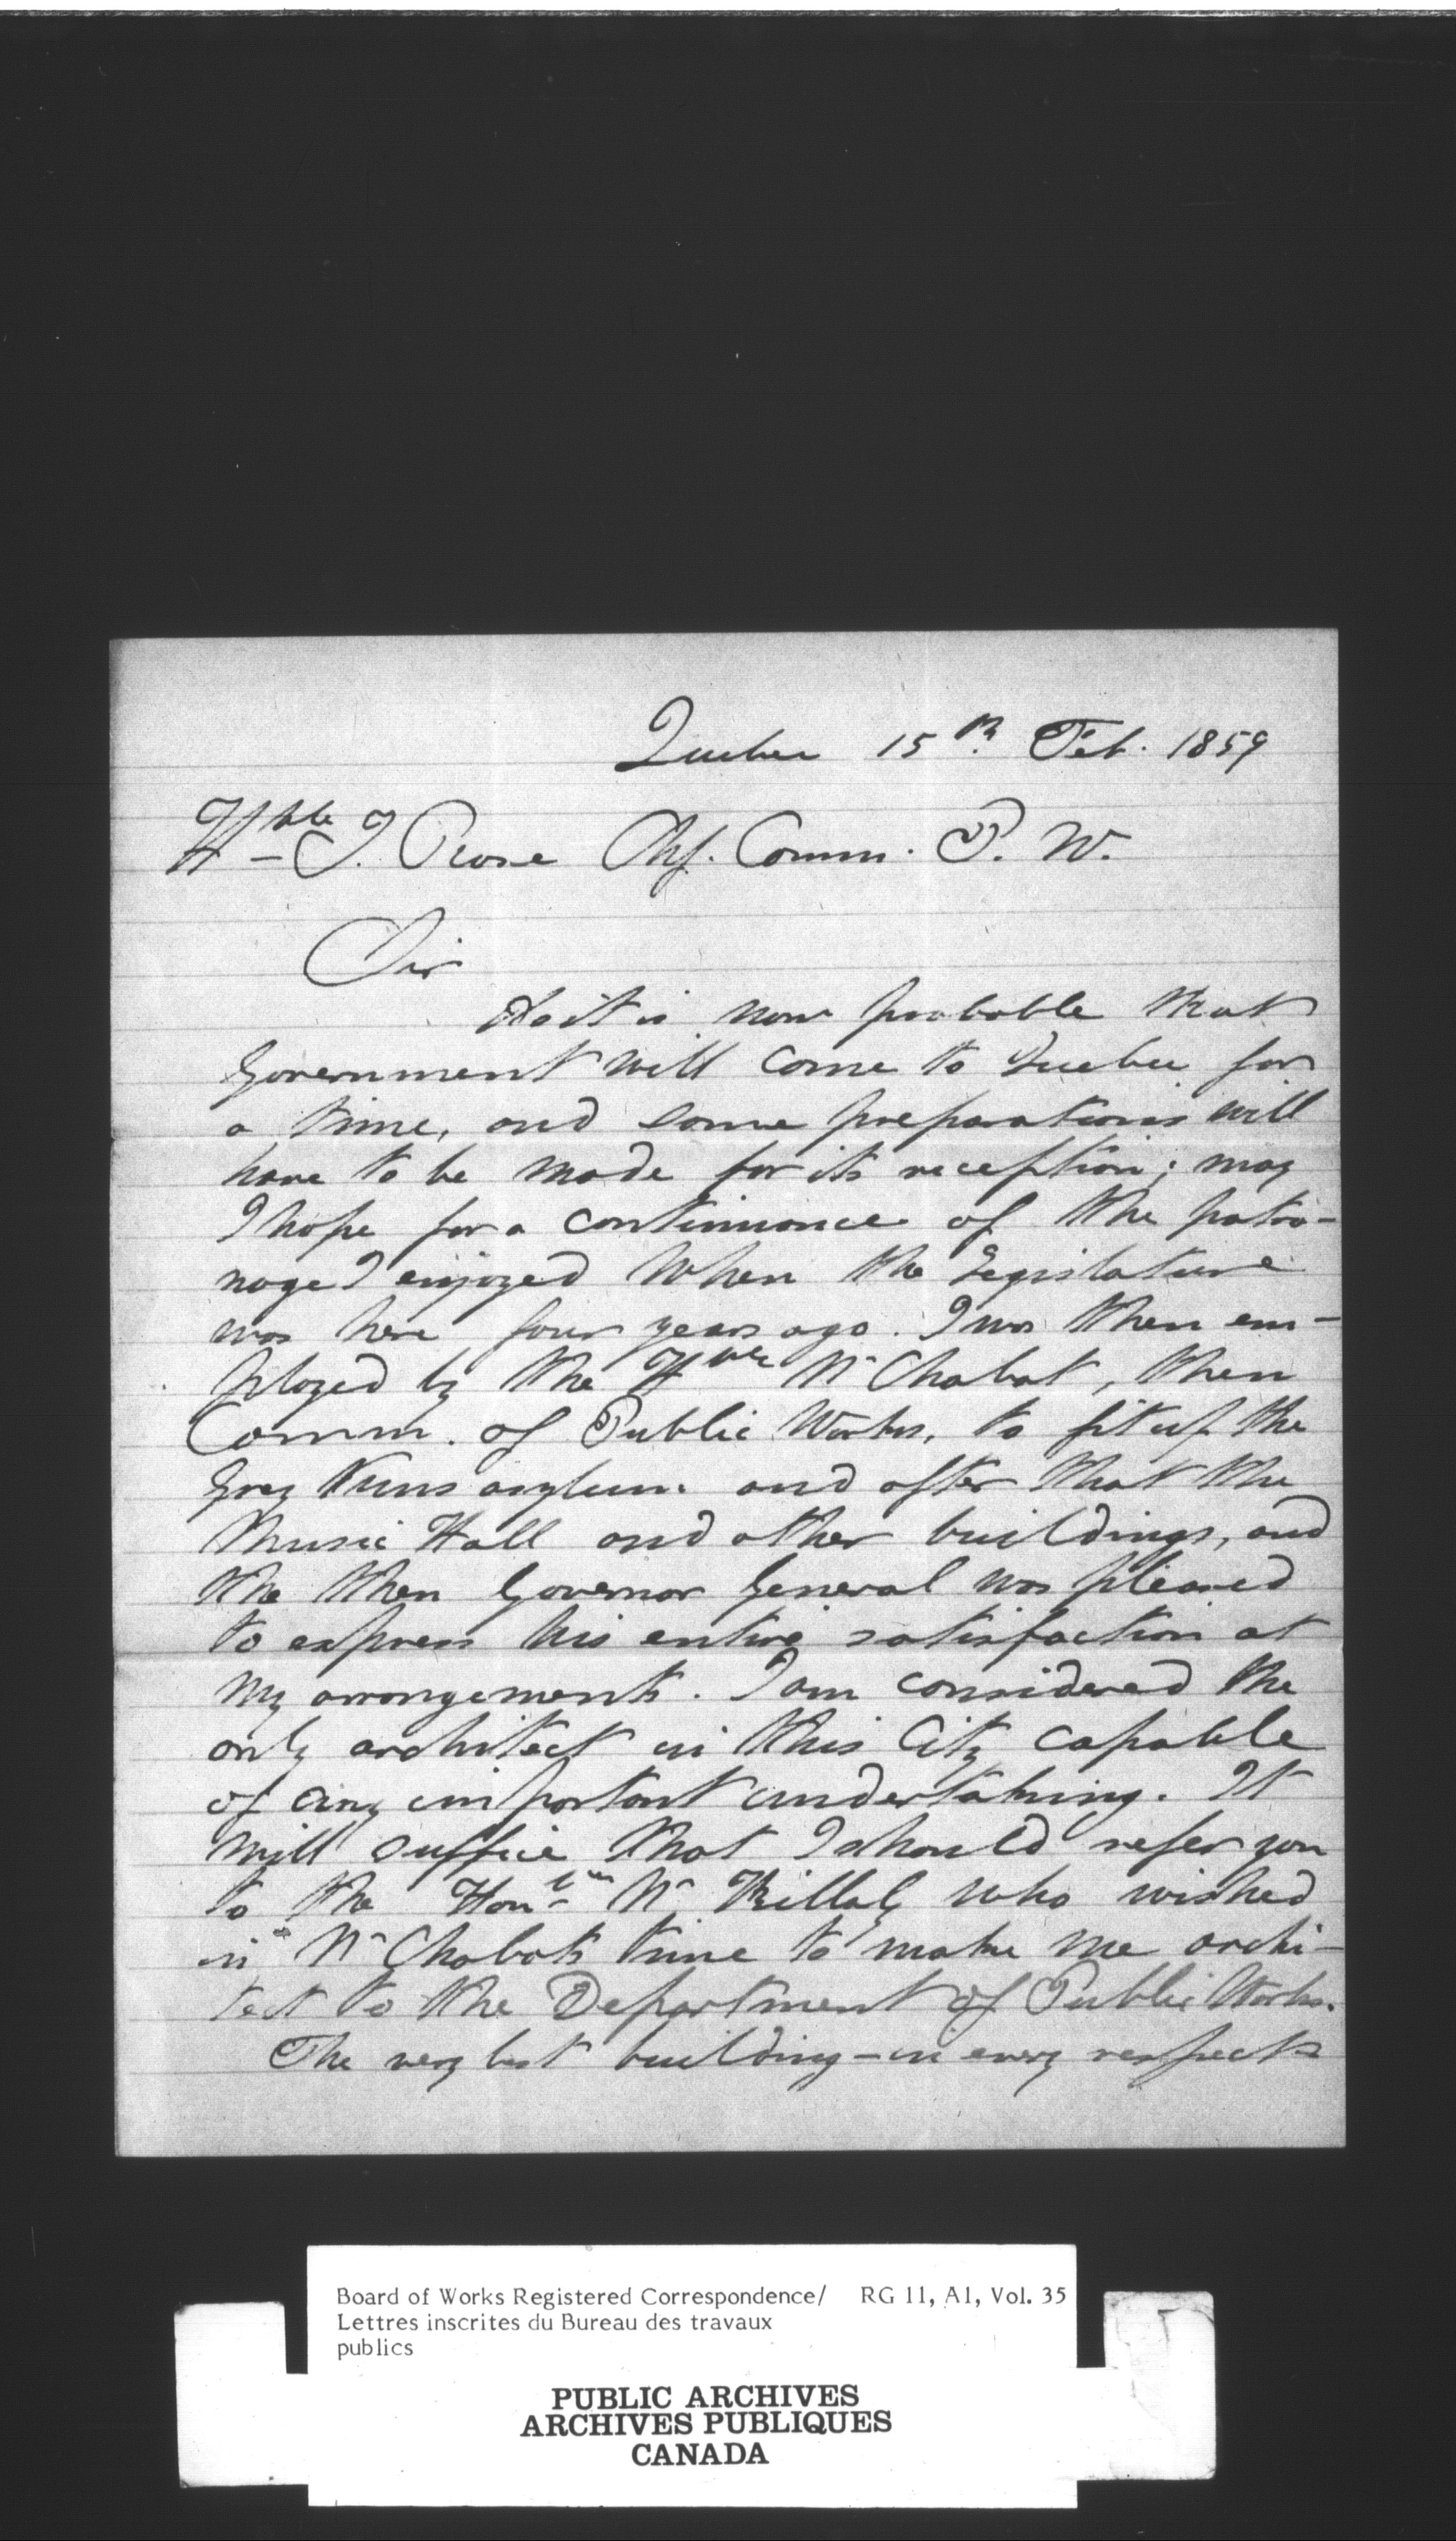 Quebec 15th Feb. 1859
Hble J. Rose Chf. Comm. P. W.
Sir
As it is now probable that
Government will come to Quebec for
a time, and some preparations will
have to be made for its reception; may
I hope for a continuance of the patro-
nage I enjoyed when the Legislature
was here four years ago. I was then em-
ployed by the Hble Mr Chabot, then
Comm. of Public Works, to fit up the
Grey Nuns asylum. and after that the
Music Hall and other buildings, and
the then Governor General was pleased
to express his entire satisfaction at
my arrangements. I am considered the
only architect in this City capable
of any important undertaking. It
will suffice that I should refer you
to the Honble Mr Killaly who wished
in Mr Chabots time to make me archi-
tect to the Department of Public Works.
The very best building - in every respect
Board of Works Registered Correspondence/ RG 11, A1, Vol. 35
Lettres inscrites du Bureau des travaux
publics
PUBLIC ARCHIVES
ARCHIVES PUBLIQUES
CANADA